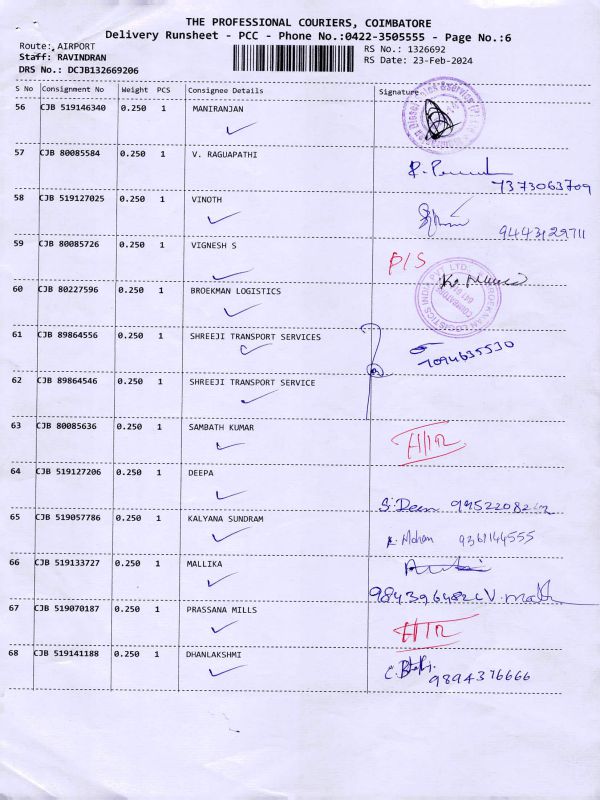 THE PROFESSIONAL COURIERS, COIMBATORE
Delivery Runsheet - PCC - Phone No.:0422-3505555 - Page No.:6
Route: AIRPORT RS No.: 1326692
Staff: RAVINDRAN RS Date: 23-Feb-2024
DRS No.: DCJB132669206
S No Consignment No Weight PCS Consignee Details Signature
56 CJB 519146340 0.250 1 MANIRANJAN
57 CJB 80085584 0.250 1 V. RAGUAPATHI
7373063709
58 CJB 519127025 0.250 1 VINOTH
9443129711
59 CJB 80085726 0.250 1 VIGNESH S P/S
60 CJB 80227596 0.250 1 BROEKMAN LOGISTICS
61 CJB 89864556 0.250 1 SHREEJI TRANSPORT SERVICES
7094635530
62 CJB 89864546 0.250 1 SHREEJI TRANSPORT SERVICE
63 CJB 80085636 0.250 1 SAMBATH KUMAR
64 CJB 519127206 0.250 1 DEEPA
S. Deepa
65 CJB 519057786 0.250 1 KALYANA SUNDRAM
K. Mohan 9361144555
66 CJB 519133727 0.250 1 MALLIKA
67 CJB 519070187 0.250 1 PRASSANA MILLS
68 CJB 519141188 0.250 1 DHANLAKSHMI
9894376666